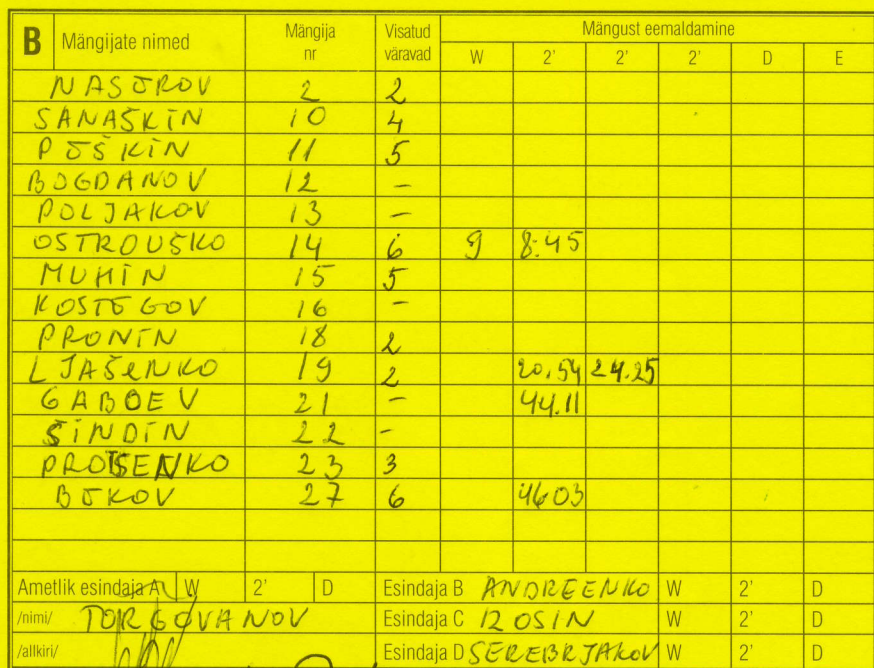 B Mängijate nimed Mängija nr Visatud väravad Mängust eemaldamine
W 2' 2' 2' D E
NASTROV 2 2
SANAŠKIN 10 4
PЪŠKIN 11 5
BOGDANOV 12 –
POLJAKOV 13 –
OSTROUŠKO 14 6 9 8:45
MUHIN 15 5
KOSTEGOV 16 –
PRONIN 18 2
LJAŠENKO 19 2 20.54 24.25
GABOEV 21 – 44.11
ŠINDIN 22 –
PROTSENKO 23 3
BЪKOV 27 6 46.03
Ametlik esindaja A W 2' D Esindaja B ANDREENKO W 2' D
/nimi/ TORGOVANOV Esindaja C IZOSIN W 2' D
/allkiri/ Esindaja D SEREBRJAKOV W 2' D